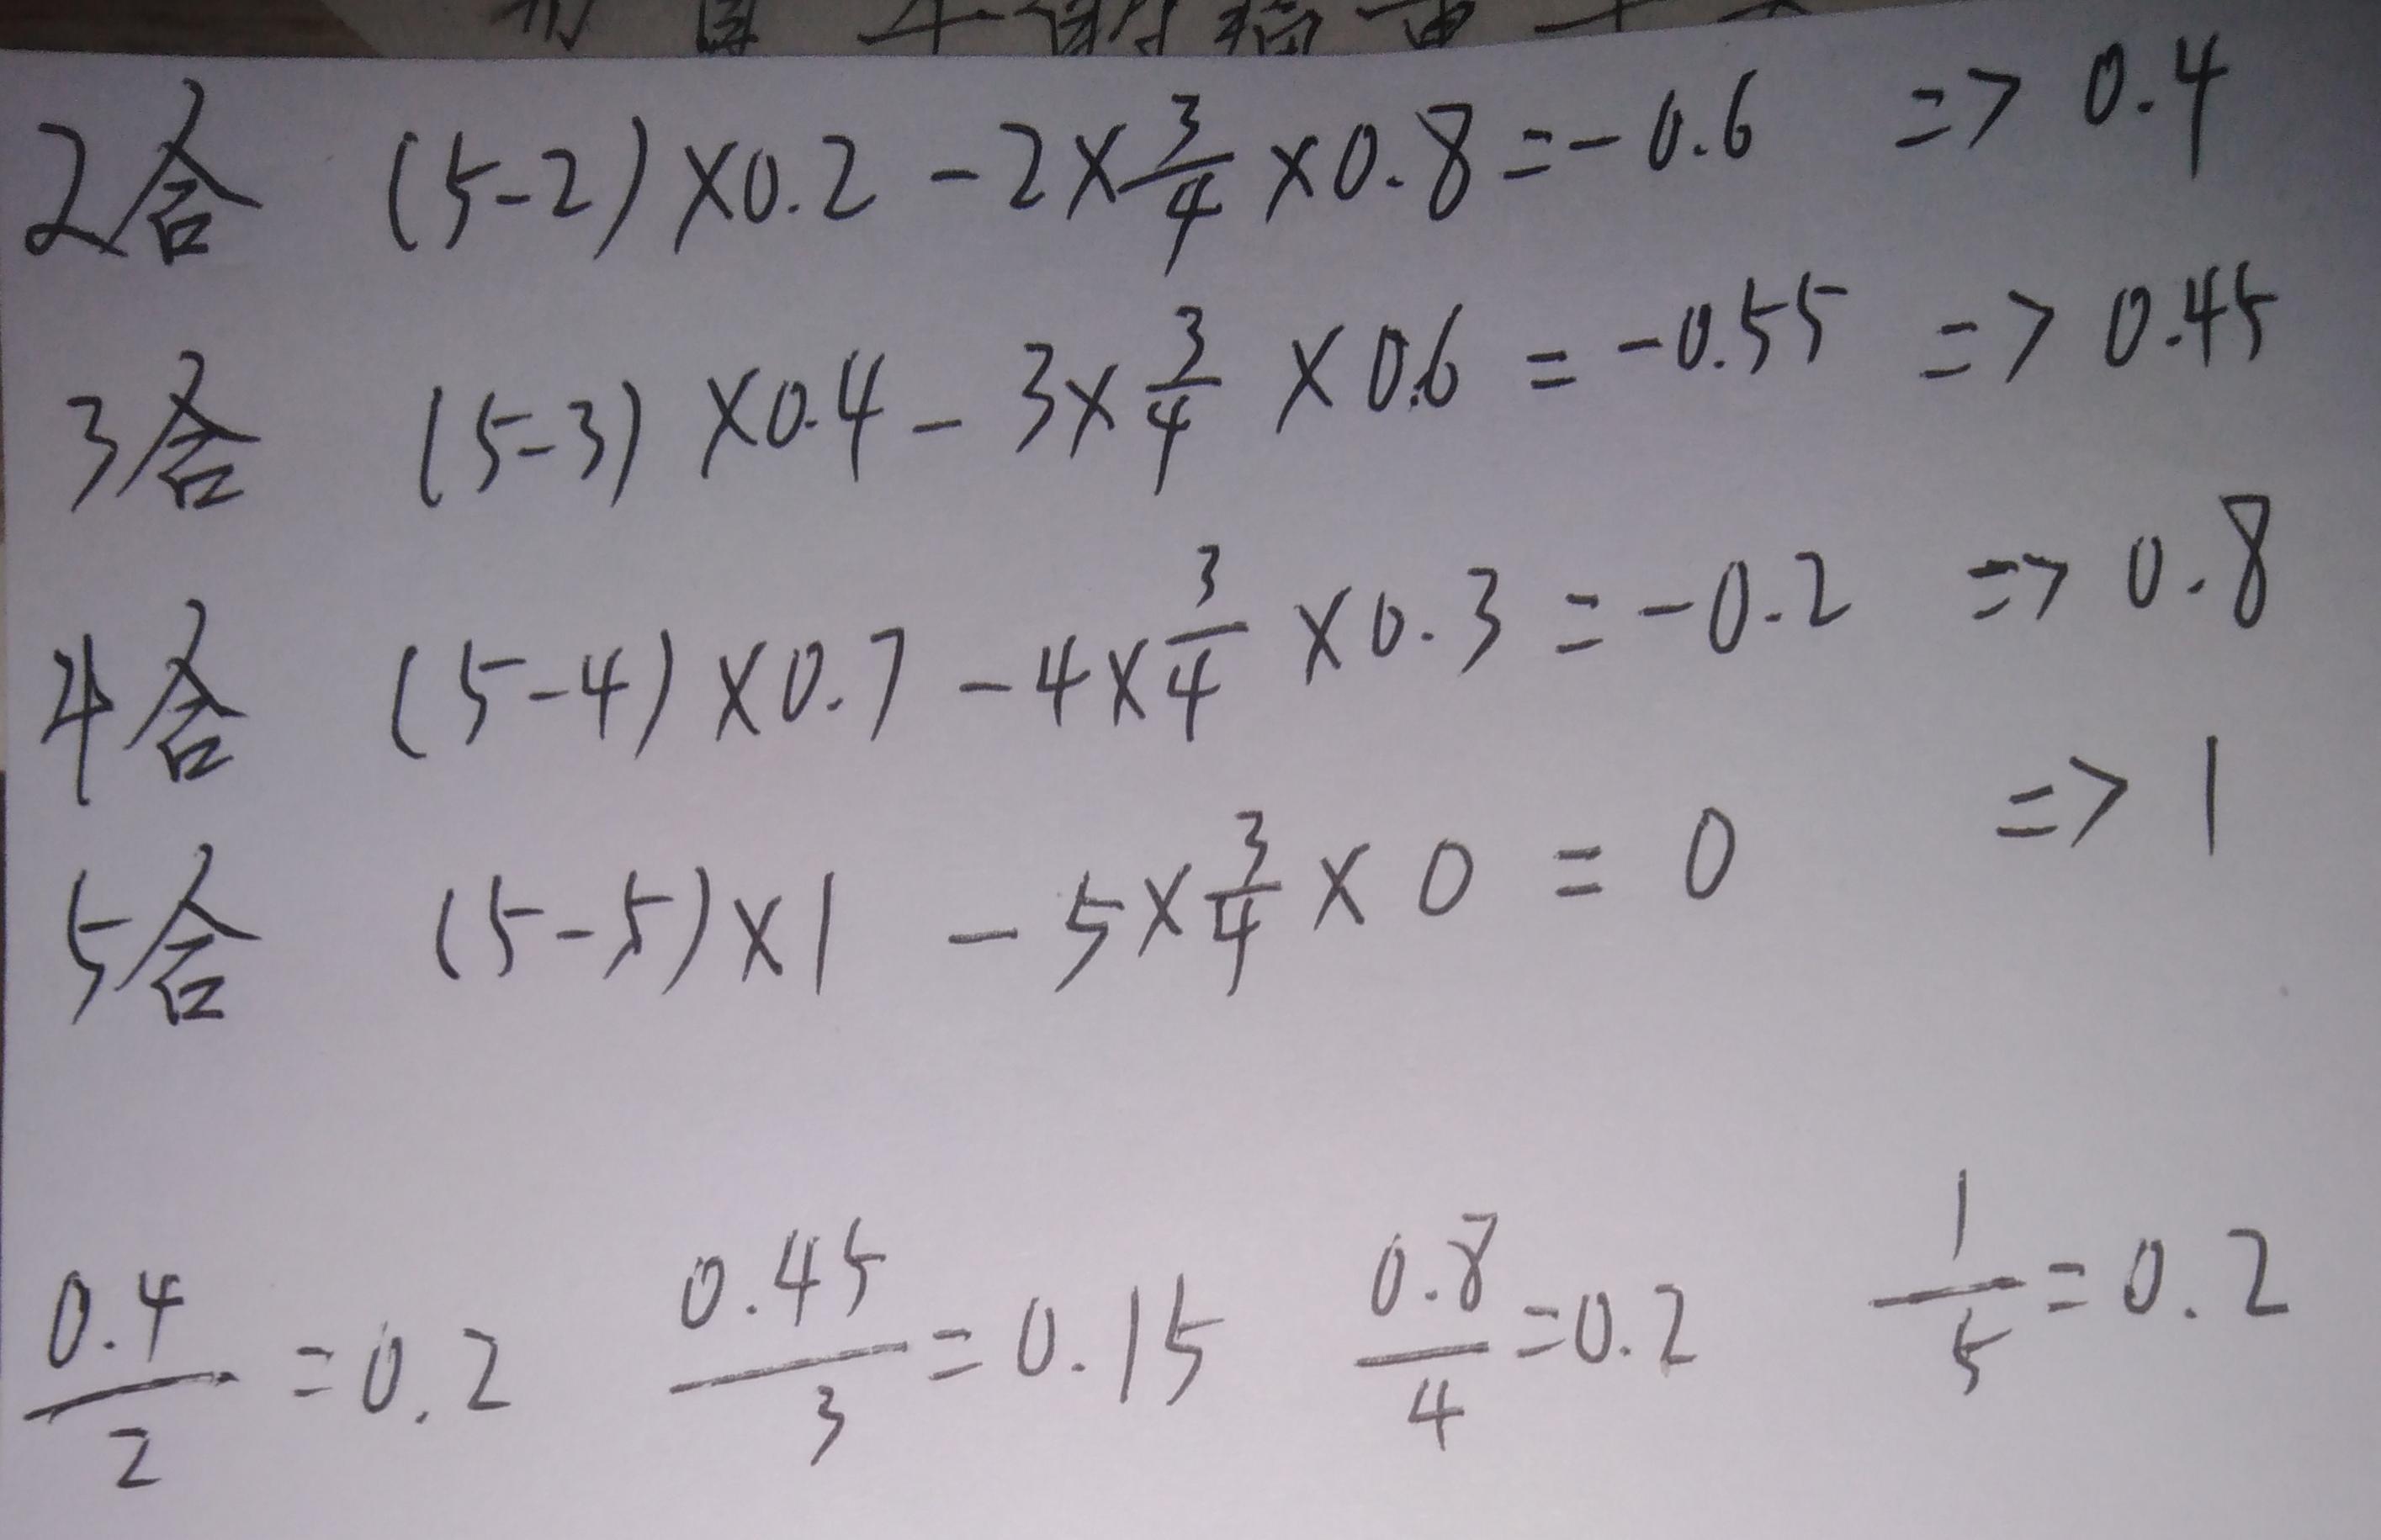 2合 (5-2)×0.2-2×3/4×0.8=-0.6 => 0.4
3合 (5-3)×0.4-3×3/4×0.6=-0.55 => 0.45
4合 (5-4)×0.7-4×3/4×0.3=-0.2 => 0.8
5合 (5-5)×1-5×3/4×0=0 => 1
0.4/2=0.2 0.45/3=0.15 0.8/4=0.2 1/5=0.2